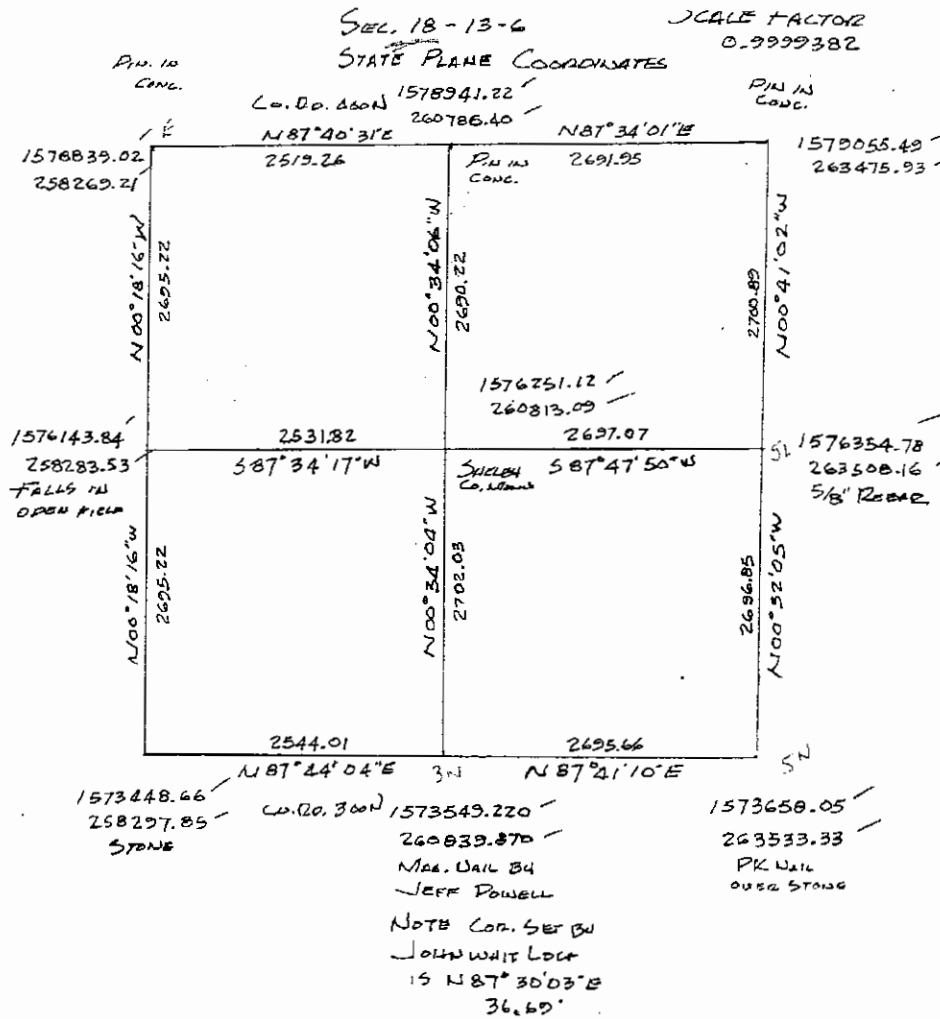 SEC. 18-13-6
STATE PLANE COORDINATES
SCALE FACTOR
0.9999382
PIN. IN
CONC.
CO. RD. 400N
1578941.22
260786.40
PIN IN
CONC.
N87°40'31"E
N87°34'01"E
1578839.02
258269.21
2519.26
PIN IN
CONC.
2691.95
1579055.49
263475.93
N00°18'16"W
2695.22
N00°34'06"W
2690.22
2700.89
N00°41'02"W
1576251.12
260813.09
1576143.84
258283.53
FALLS IN
OPEN FIELD
2531.82
S87°34'17"W
2697.07
S87°47'50"W
SHELBY
CO.
1576354.78
263508.16
5/8" REBAR
N00°18'16"W
2695.22
N00°34'04"W
2702.03
2696.85
N00°32'05"W
2544.01
N87°44'04"E
3N
2695.66
N87°41'10"E
5N
1573448.66
258297.85
STONE
CO. RD. 300N
1573549.220
260839.870
MAG. NAIL BY
JEFF POWELL
1573658.05
263533.33
PK NAIL
OVER STONE
NOTE COR. SET BY
JOHN WHIT LOCK
IS N87°30'03"E
36.69'